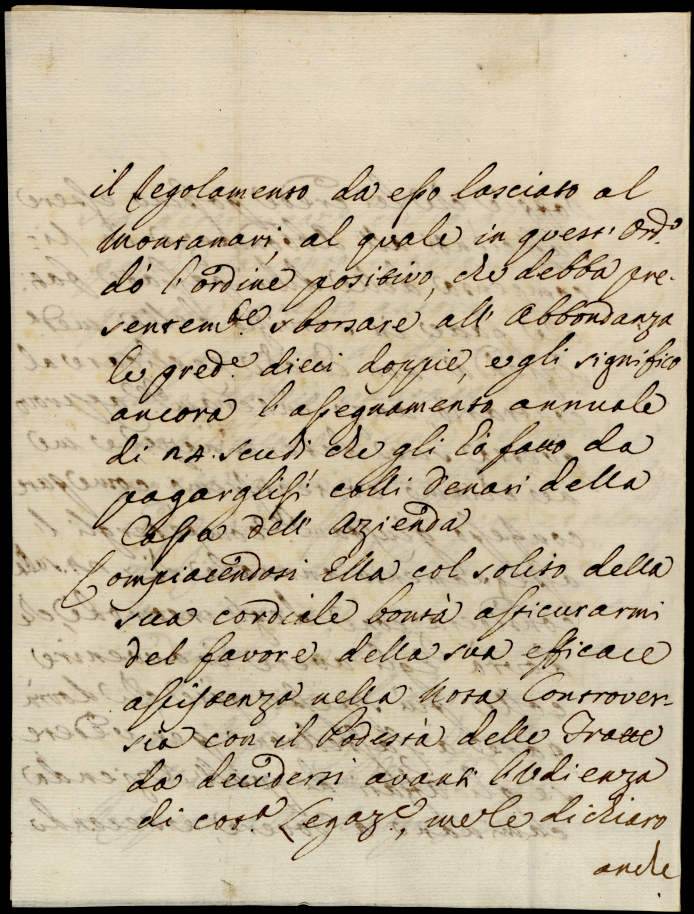 il Regolamento da esso lasciato al
Montanari, al quale in quest' Ord.º
dò l'ordine positivo, che debba pre-
sentem.be sborsare all' Abbondanza
le pred.e dieci doppie, e gli significo
ancora l'assegnamento annuale
di 24. scudi che gli hò fatto da
pagarglisi colli denari della
Cassa dell' Azienda
Compiacendosi Ella col solito della
sua cordiale bontà assicurarmi
del favore della sua efficace
assistenza nella nota Controver-
sia con il Podestà delle Tratte
da decidersi avanti l'Udienza
di cot.a Legaz.e, me le dichiaro
anche